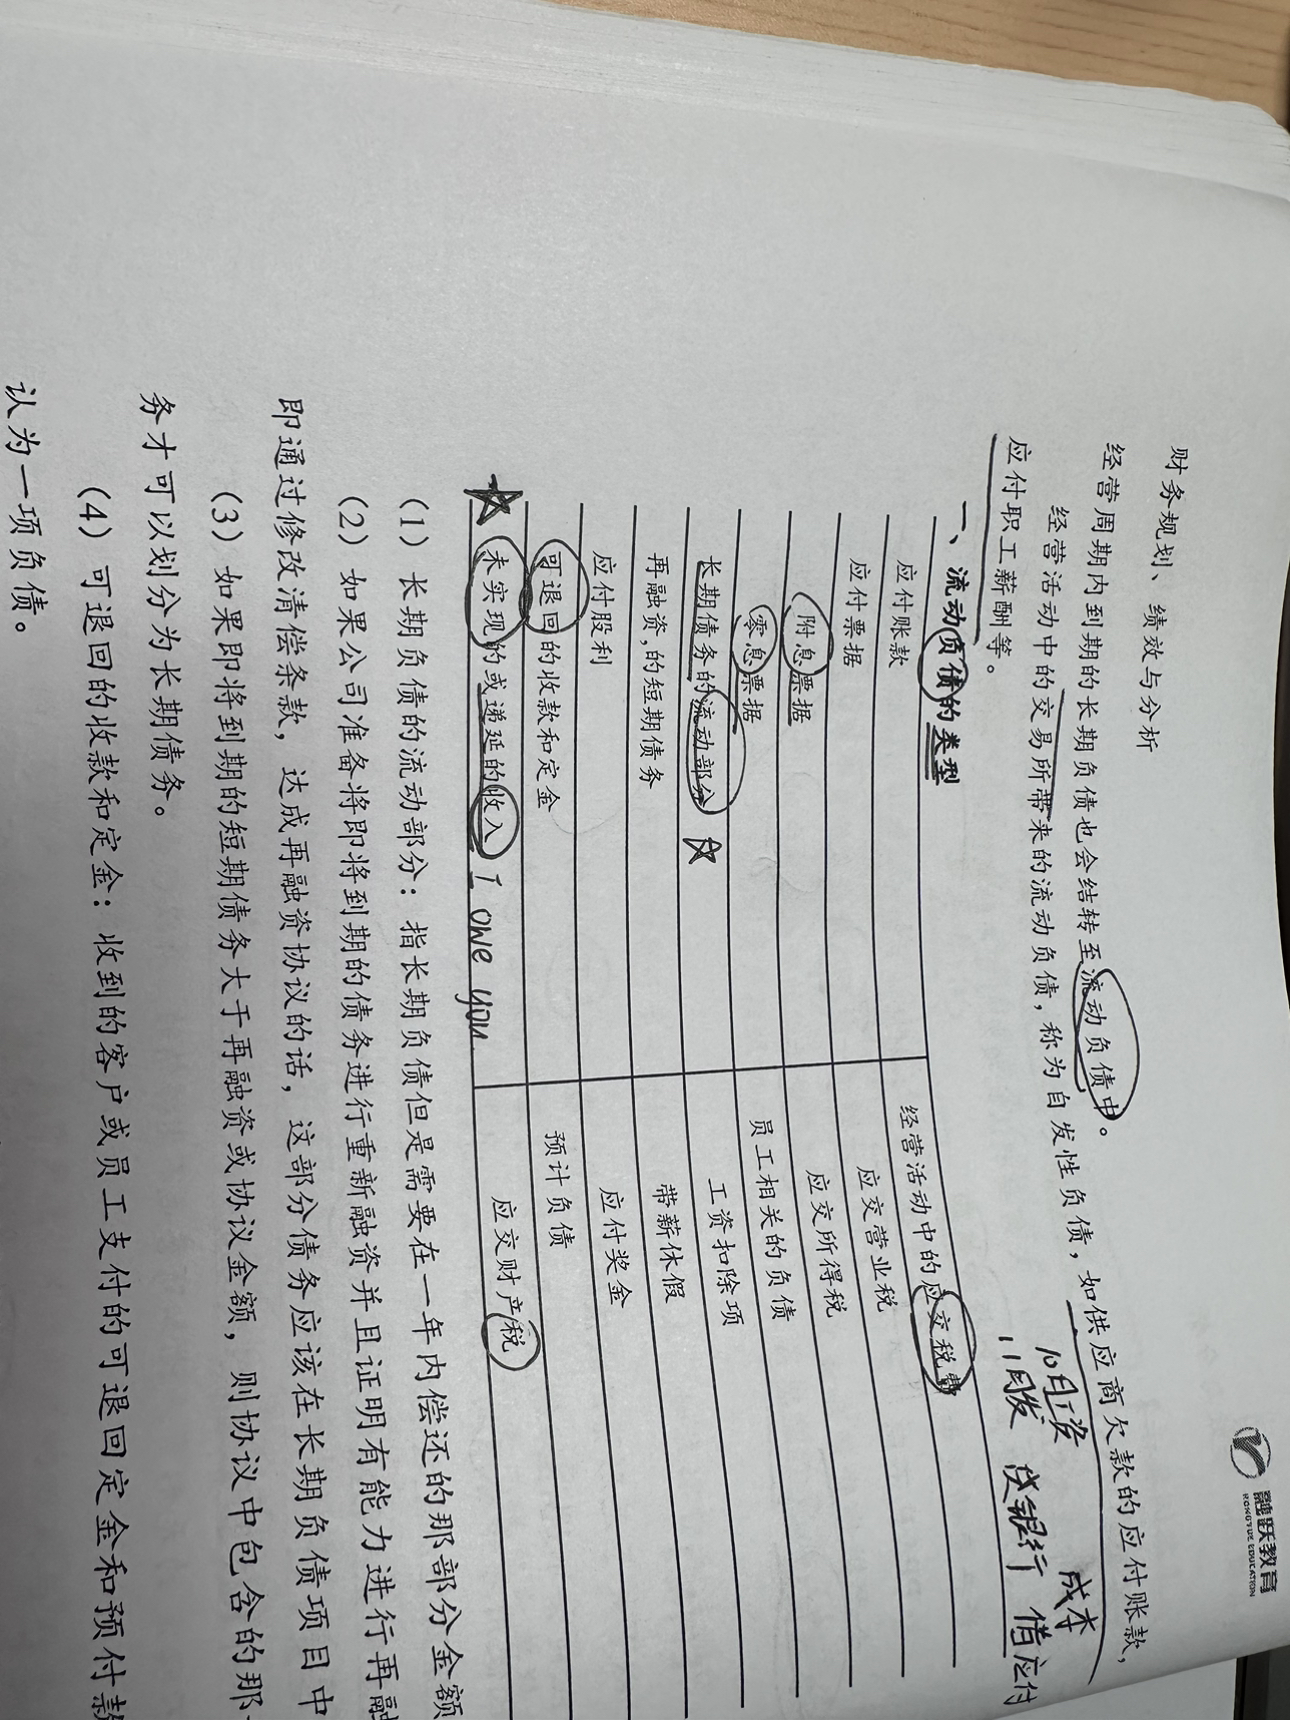 融跃教育
RONGYUE EDUCATION
财务规划、绩效与分析
经营周期内到期的长期负债也会结转至流动负债中。
经营活动中的交易所带来的流动负债，称为自发性负债，如供应商欠款的应付账款，
应付职工薪酬等。
10月工资
成本
11月发
银行
借应付
一、流动负债的类型
应付账款 经营活动中的应交税费
应付票据 应交营业税
附息票据 应交所得税
零息票据 员工相关的负债
长期债务的流动部分 工资扣除项
再融资,的短期债务 带薪休假
应付股利 应付奖金
可退回的收款和定金 预计负债
未实现的或递延的收入 I owe you. 应交财产税
（1）长期负债的流动部分：指长期负债但是需要在一年内偿还的那部分金额
（2）如果公司准备将即将到期的债务进行重新融资并且证明有能力进行再融
即通过修改清偿条款，达成再融资协议的话，这部分债务应该在长期负债项目中
（3）如果即将到期的短期债务大于再融资或协议金额，则协议中包含的那
务才可以划分为长期债务。
（4）可退回的收款和定金：收到的客户或员工支付的可退回定金和预付款
认为一项负债。